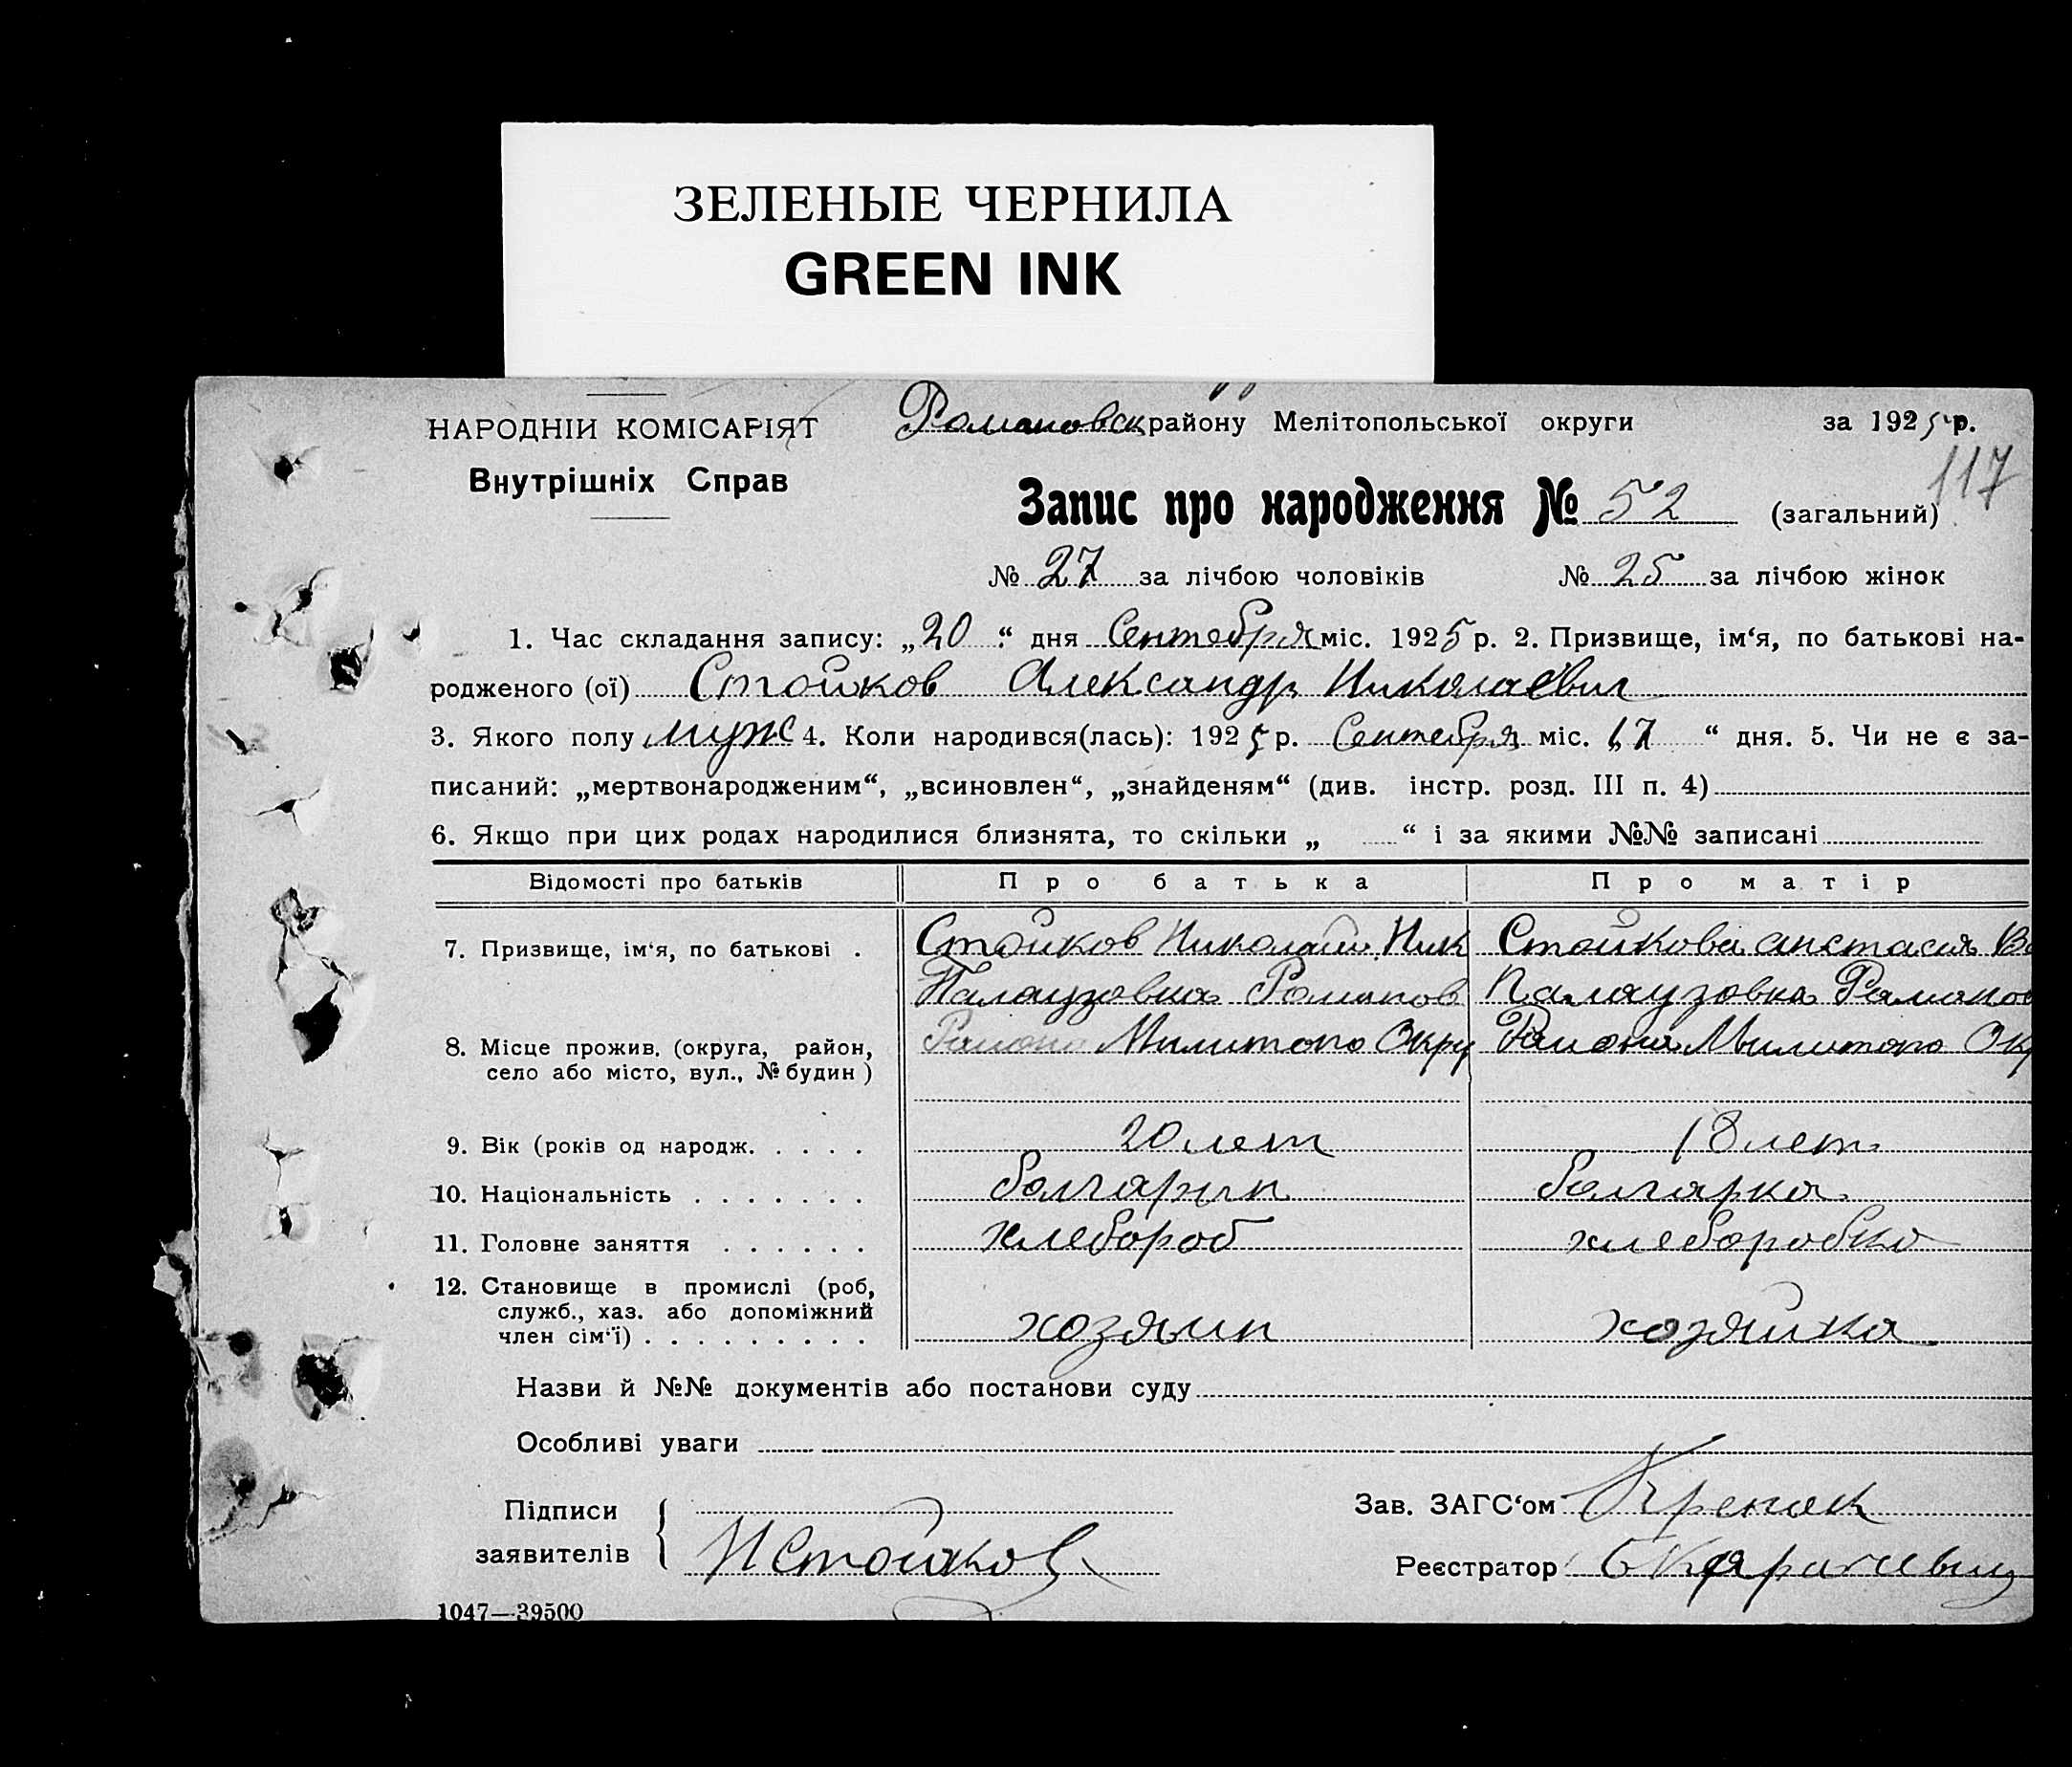 ЗЕЛЕНЫЕ ЧЕРНИЛА
GREEN INK
НАРОДНІЙ КОМІСАРІЯТ
Внутрішніх Справ
Романовск району Мелітопольської округи за 1925 р.
117
Запис про народження № 52 (загальний)
№ 27 за лічбою чоловіків № 25 за лічбою жінок
1. Час складання запису: „20“ дня Сентября міс. 1925 р. 2. Призвище, ім‘я, по батькові на-
родженого (ої) Стойков Александр Николаевич
3. Якого полу муж 4. Коли народився(лась): 1925 р. Сентября міс. „17“ дня. 5. Чи не є за-
писаний: „мертвонародженим“, „всиновлен“, „знайденям“ (див. інстр. розд. III п. 4)
6. Якщо при цих родах народилися близнята, то скільки „ “ і за якими №№ записані
Відомості про батьків Про батька Про матір
7. Призвище, ім‘я, по батькові . Стойков Николай Ник Стойкова анстасия Ва
Палаузовка Романов Палаузовка Романов
8. Місце прожив. (округа, район, Района Милитопо Окру Района Милитопо Ок
село або місто, вул., № будин )
9. Вік (років од народж. . . . . 20 лет 18 лет
10. Національність . . . . . . . болгарин болгарка
11. Головне заняття . . . . . . хлебороб хлеборобка
12. Становище в промислі (роб,
служб., хаз. або допоміжний
член сім‘ї) . . . . . . . . . хозяин хозяйка
Назви й №№ документів або постанови суду
Особливі уваги
Підписи Зав. ЗАГС‘ом
заявителів Н Стойков Реєстратор
1047—39500